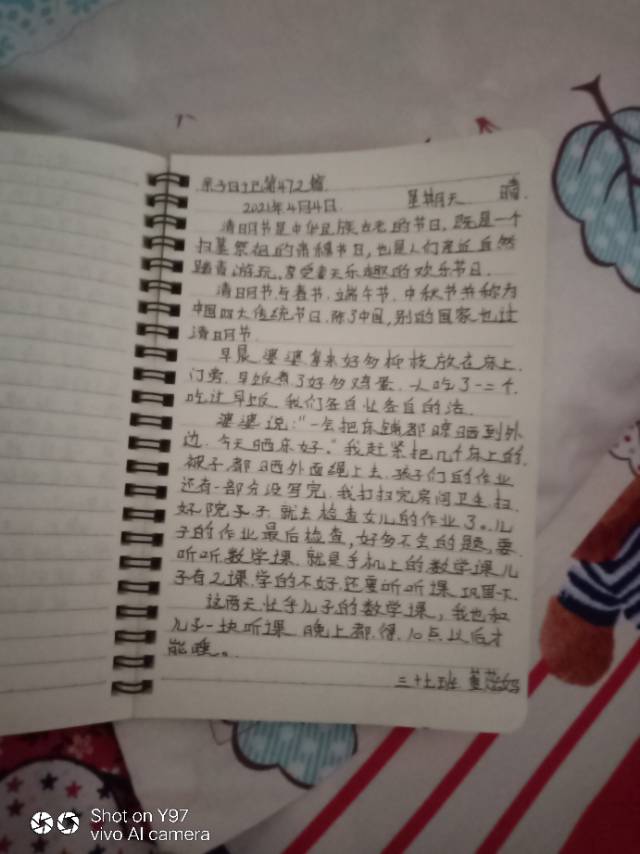 亲子日记第472篇
2021年4月4日 星期天 晴
清明节是中华民族古老的节日，既是一个
扫墓祭祖的肃穆节日，也是人们亲近自然
踏青游玩，享受春天乐趣的欢乐节日。
清明节与春节、端午节、中秋节并称为
中国四大传统节日，除了中国，别的国家也过
清明节
早晨婆婆拿来好多柳枝放在床上
门旁，早饭煮了好多鸡蛋，一人吃了一二个，
吃过早饭，我们各自忙各自的活。
婆婆说："一会把床铺都晾晒到外
边，今天晒床好。"我赶紧把几个床上的
被子都晒外面绳上去，孩子们的作业
还有一部分没写完，我打扫完房间卫生，扫
好院子，就去检查女儿的作业了。儿
子的作业最后检查，好多不会的题，要
听听数学课，就是手机上的数学课，儿
子有2课学的不好，还要听听课，巩固一下
这两天忙乎儿子的数学课，我也和
儿子一块听课，晚上都得10点以后才
能睡。
三十七班 妈
Shot on Y97
vivo AI camera